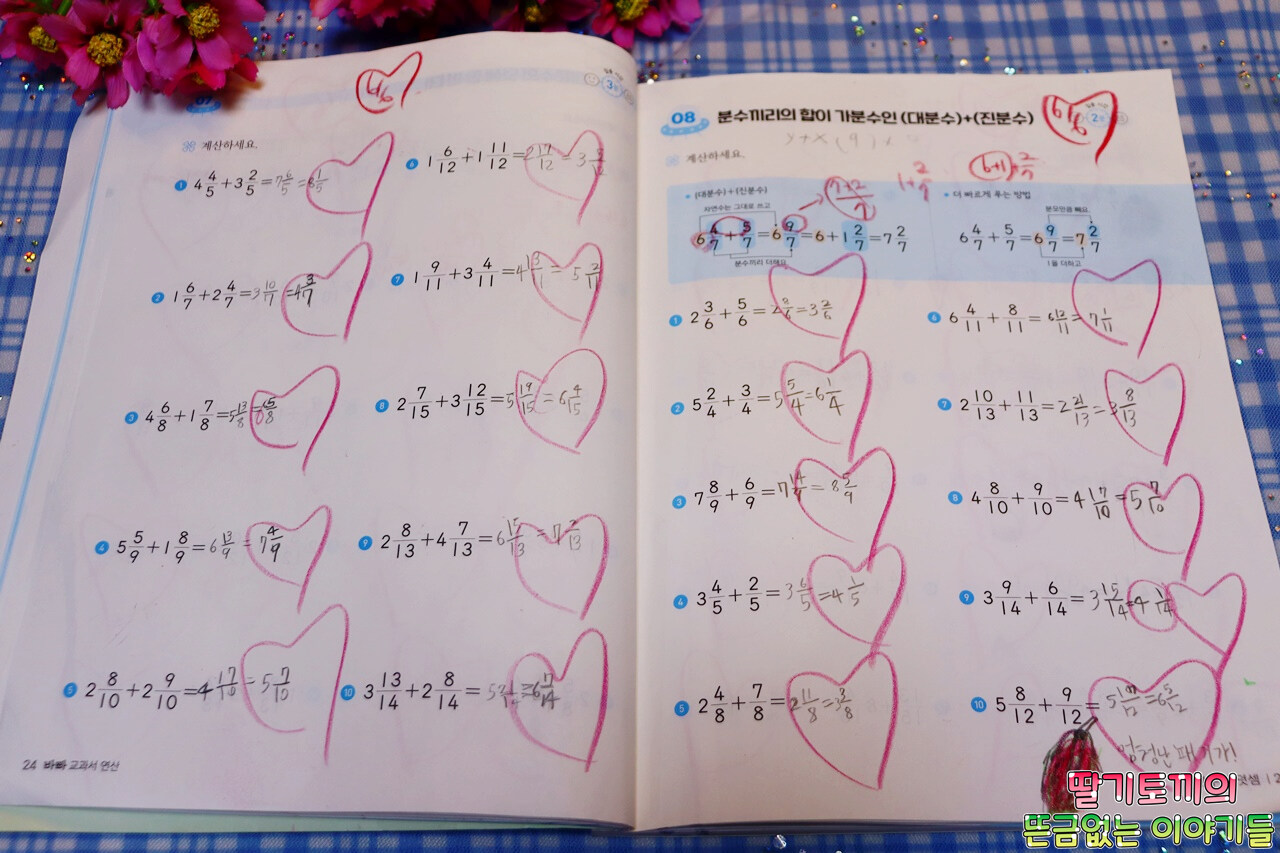 07
3
6/6
계산하세요.
1 4 4/5 + 3 2/5 = 7 6/5 = 8 1/5
2 1 6/7 + 2 4/7 = 3 10/7 = 4 3/7
3 4 6/8 + 1 7/8 = 5 13/8 = 6 5/8
4 5 5/9 + 1 8/9 = 6 13/9 = 7 4/9
5 2 8/10 + 2 9/10 = 4 17/10 = 5 7/10
6 1 6/12 + 1 11/12 = 2 17/12 = 3
7 1 9/11 + 3 4/11 = 4 13/ = 5 2/11
8 2 7/15 + 3 12/15 = 5 19/15 = 6 4/15
9 2 8/13 + 4 7/13 = 6 15/13 = 7 2/13
10 3 13/14 + 2 8/14 = 6 7/14
24 바빠 교과서 연산
08 분수끼리의 합이 가분수인 (대분수)+(진분수)
6/6
2
계산하세요.
1+2/7
(6+1)+2/7
7+2/7
• (대분수)+(진분수)
자연수는 그대로 쓰고
6 4/7 + 5/7 = 6 9/7 = 6 + 1 2/7 = 7 2/7
분수끼리 더해요
• 더 빠르게 푸는 방법
분모만큼 빼요.
6 4/7 + 5/7 = 6 9/7 = 7 2/7
1을 더하고
1 2 3/6 + 5/6 = 2 8/6 = 3 2/6
2 5 2/4 + 3/4 = 5 5/4 = 6 1/4
3 7 8/9 + 6/9 = 7 14/9 = 8 5/9
4 3 4/5 + 2/5 = 3 6/5 = 4 1/5
5 2 4/8 + 7/8 = 2 11/8 = 3 3/8
6 6 4/11 + 8/11 = 6 12/11 = 7 1/11
7 2 10/13 + 11/13 = 2 21/13 = 3 8/13
8 4 8/10 + 9/10 = 4 17/10 = 5 7/10
9 3 9/14 + 6/14 = 3 15/14 = 4 1/14
10 5 8/12 + 9/12 = 5 17/12 = 6 5/12
엄청난 패기가!
덧셈 | 2
딸기토끼의
뜬금없는 이야기들